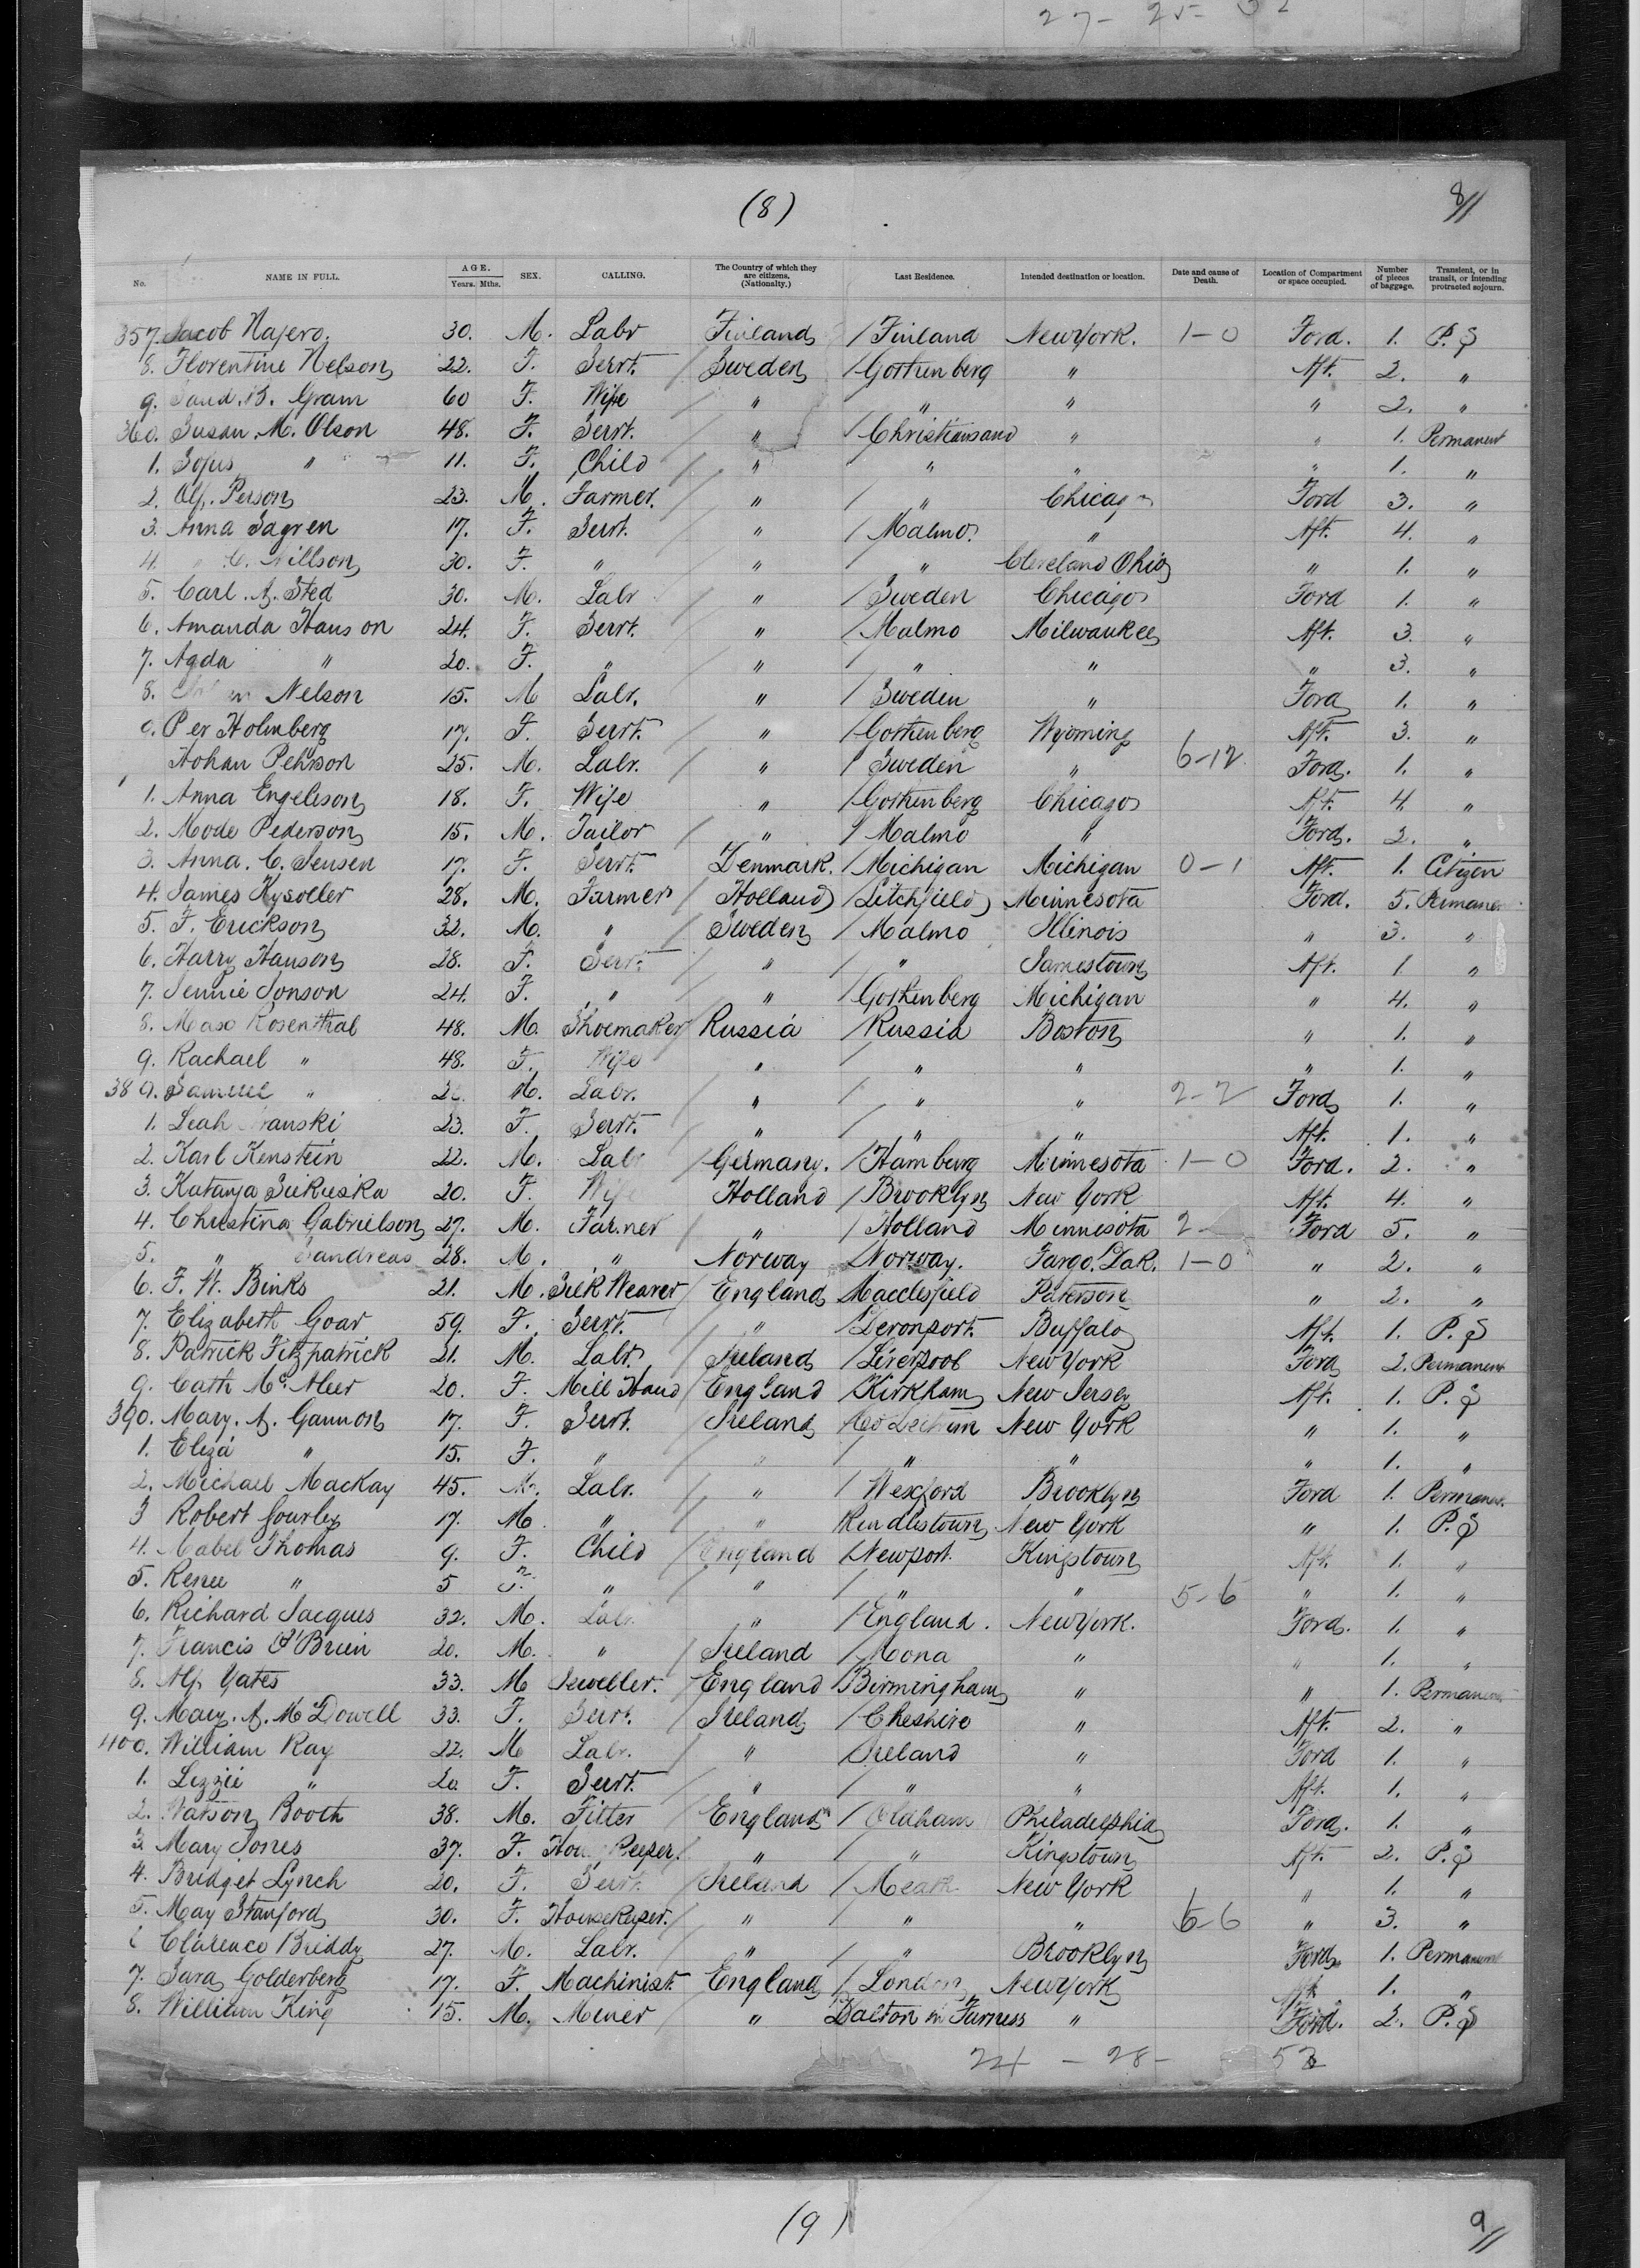 27- 25-
(8)
8//
No. NAME IN FULL. AGE. Years. Mths. SEX. CALLING. The Country of which they are citizens. (Nationalty.) Last Residence. Intended destination or location. Date and cause of Death. Location of Compartment or space occupied. Number of pieces of baggage. Transient, or in transit, or intending protracted sojourn.
357. Jacob Najero. 30. M. Labr Finland / Finland New York. 1-0 Ford. 1. P.S
8. Florentine Nelson 22. F. Servt. / Sweden / Gothenberg " Aft. 2. "
9. B. Gram 60 F. Wife / " / " " " 2. "
360. Susan M. Olson 48. F. Servt. / " / Christiansand " " 1. Permanent
1. Sofus " 11. F. Child / " / " " " 1. "
2. Alf. Person 23. M. Farmer. / " / " Chicago Ford 3. "
3. Anna Sagren 17. F. Servt. / " / Malmo " Aft. 4. "
4. " C. Nillson 30. F. " / " / " Cleveland Ohio " 1. "
5. Carl. A. Sted 30. M. Labr / " / Sweden Chicago Ford 1. "
6. Amanda Hanson 24. F. Servt. / " / Malmo Milwaukee Aft. 3. "
7. Agda " 20. F. " / " / " " " 3. "
8. Nelson 15. M Labr. / " / Sweden " Ford 1. "
9. Per Holmberg 17. F. Servt. / " / Gothenberg Wyoming Aft. 3. "
Hohan Pehrson 25. M. Labr. / " / Sweden " 6-12 Ford. 1. "
1. Anna Engelison 18. F. Wife " / Gothenberg Chicago Aft. 4. "
2. Mode Pederson 15. M. Tailor / " / Malmo " Ford. 2. "
3. Anna. C. Jensen 17. F. Servt. Denmark. / Michigan Michigan 0-1 Aft. 1. Citizen
4. James Kysoller 28. M. Farmer / Holland / Litchfield Minnesota Ford. 5. Permanent
5. F. Erickson 32. M. " / Sweden / Malmo Illinois " 3. "
6. Harry Hanson 28. F. Servt. / " / " Jamestown Aft. 1. "
7. Jennie Jonson 24. F. " / " / Gothenberg Michigan " 4. "
8. Rosenthal 48. M. Shoemaker Russia / Russia Boston " 1. "
9. Rachael " 48. F. Wife " / " " " 1. "
380. Samuel " M. Labr. / " / " " 2-2 Ford 1. "
1. Leah 23. F. Servt. / " / " " Aft. 1. "
2. Karl Kenstein 22. M. Labr / Germany. / Hamberg Minnesota 1-0 Ford. 2. "
3. Katanja 20. F. Wife Holland / Brooklyn New York Aft. 4. "
4. Christina Gabrielson 27. M. Farmer / " / Holland Minnesota 2- Ford 5. "
5. " Sandreas 28. M. " / Norway / Norway. Fargo. Dak. 1-0 " 2. "
6. F. W. Binks 21. M. Silk Weaver / England / Macclesfield Paterson " 2. "
7. Elizabeth Goar 59. F. Servt. / " / Devonport. Buffalo Aft. 1. P.S
8. Patrick Fitzpatrick 21. M. Labr. / Ireland / Liverpool New York Ford 2. Permanent
9. Cath Mc Aleer 20. F. Mill Hand / England / Kirkham New Jersey Aft. 1. P.S
390. Mary. A. Gannon 17. F. Servt. / Ireland / Co New York " 1. "
1. Eliza " 15. F. " / " / " " " 1. "
2. Michael MacKay 45. M. Labr. / " / Wexford Brooklyn Ford 1. Permanent
3 Robert Gourley 17. M. " / " / Randlestown New York " 1. P.S
4. Mabel Thomas 9. F. Child / England / Newport. Kingstown Aft. 1. "
5. Renee " 5 F. " / " / " " 5-6 " 1. "
6. Richard Jacques 32. M. Labr " / England. New York. Ford. 1. "
7. Francis O'Brien 20. M. " / Ireland / Mona " " 1. "
8. Alf. Yates 33. M Jeweller. / England / Birmingham " " 1. Permanent
9. Mary. A. McDowell 33. F. Servt. / Ireland / Cheshire " Aft. 2. "
400. William Ray 22. M Labr. / " / Ireland " Ford 1. "
1. Lizzie " 20 F. Servt. / " / " " Aft. 1. "
2. Watson Booth 38. M. Fitter / England / Oldham Philadelphia Ford. 1. "
3. Mary Jones 37. F. House Keeper. / " / " Kingstown Aft. 2. P.S
4. Bridget Lynch 20. F. Servt. / Ireland / Meath New York " 1. "
5. May Stanford 30. F. Housekeeper. / " / " " 6-6 " 3. "
6 Clarence Briddy 27. M. Labr. / " / " Brooklyn Ford. 1. Permanent
7. Sara Golderberg 17. F. Machinist. England / London New York Aft. 1. "
8. William King 15. M. Miner " Dalton in Furness " Ford. 2. P.S
24 - 28- 52
(9)
9//